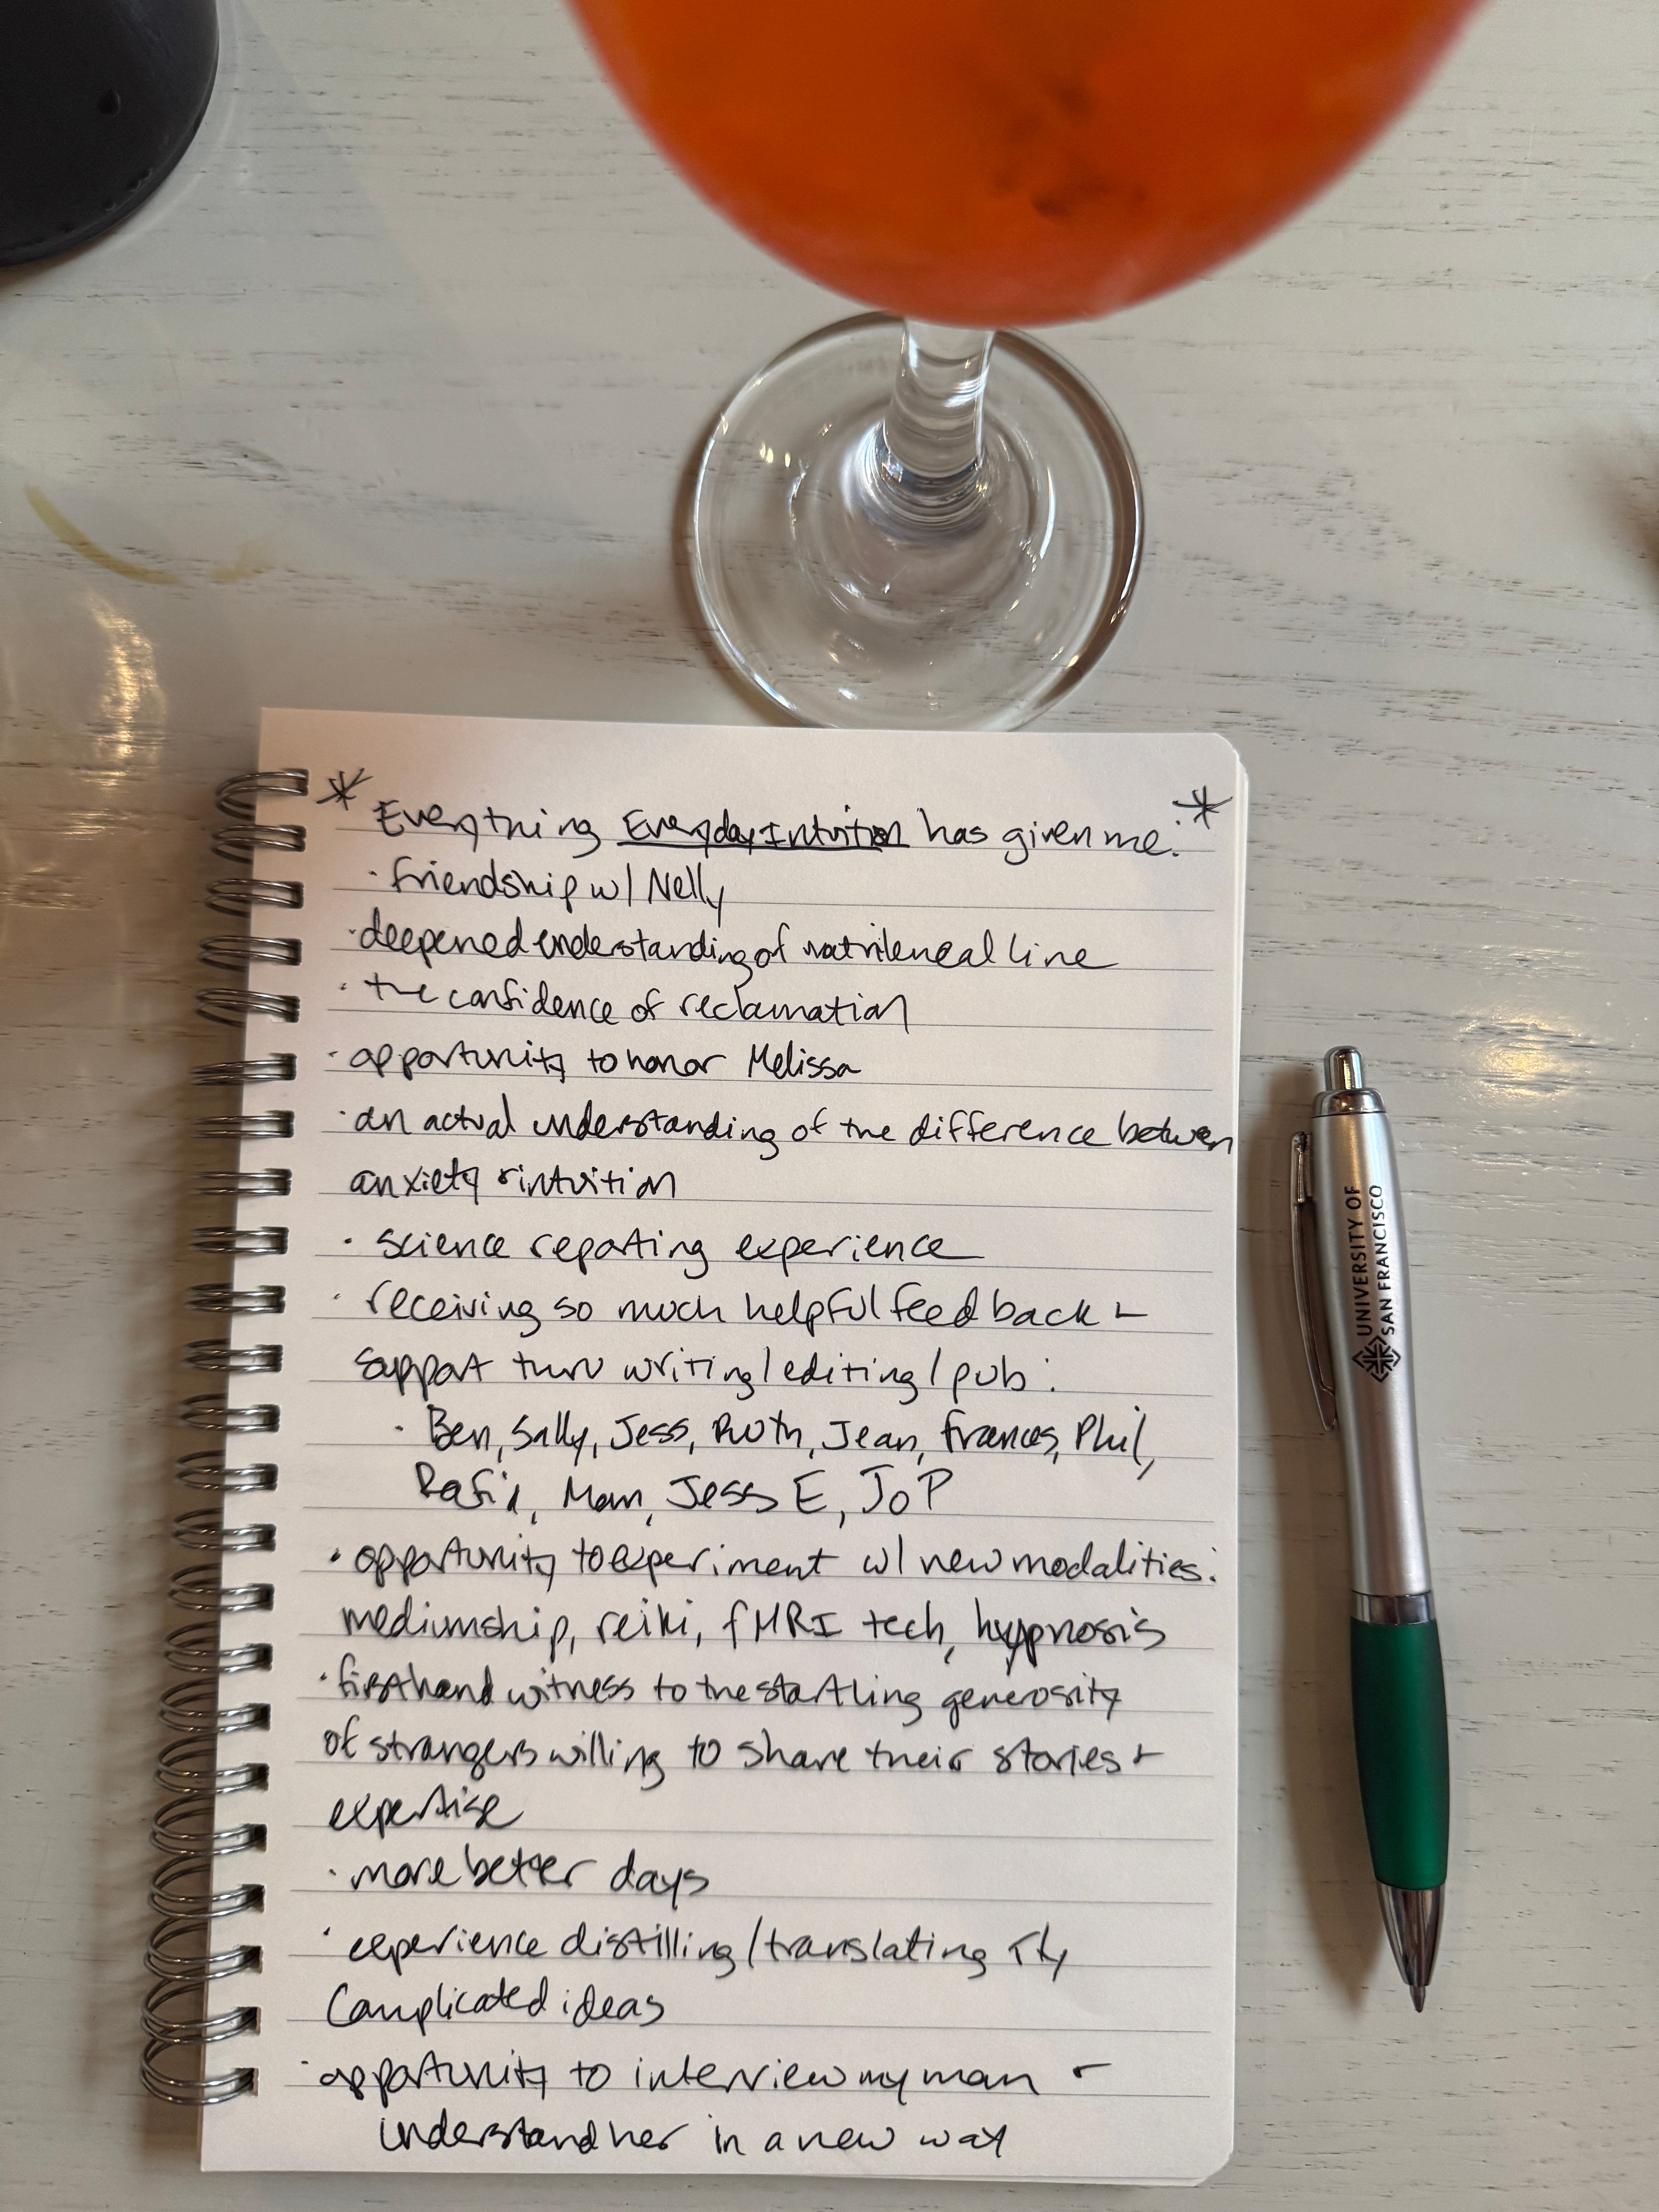 * Everything Everyday Intuition has given me: *
· friendship w/ Nelly
· deepened understanding of matrileneal line
· the confidence of reclamation
· opportunity to honor Melissa
· an actual understanding of the difference between
anxiety + intuition
· science reporting experience
· receiving so much helpful feedback +
support thru writing/editing/pub:
· Ben, Sally, Jess, Ruth, Jean, Frances, Phil,
Mom, Jess E, JoP
· opportunity to experiment w/ new modalities:
mediumship, reiki, fMRI tech, hypnosis
· firsthand witness to the startling generosity
of strangers willing to share their stories +
expertise
· more better days
· experience distilling/translating
complicated ideas
· opportunity to interview my mom +
understand her in a new way
UNIVERSITY OF
SAN FRANCISCO